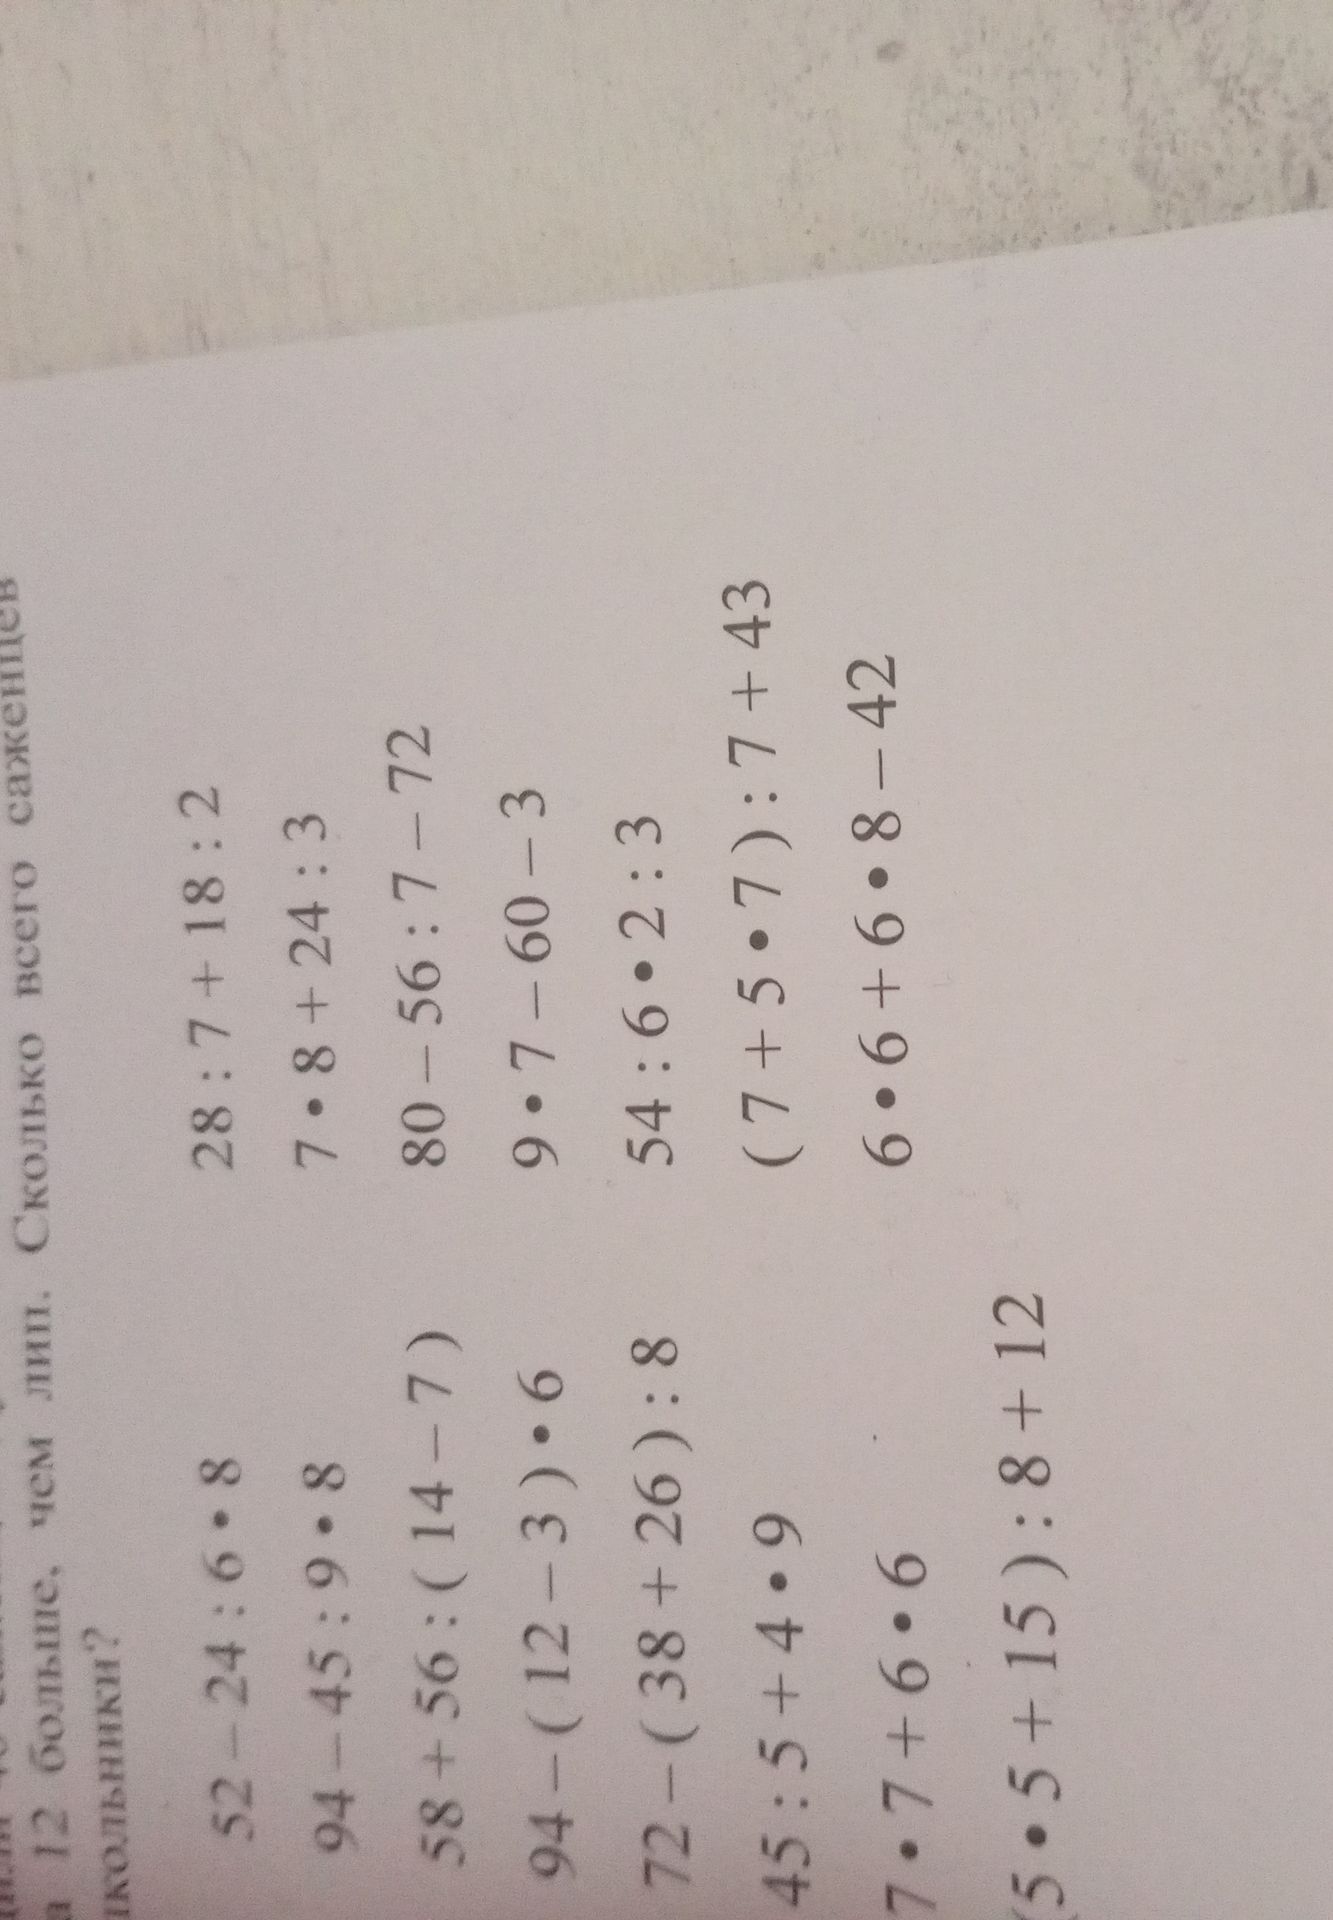 12 больше, чем лип. Сколько всего саженцев
школьники?
52 – 24 : 6 • 8 28 : 7 + 18 : 2
94 – 45 : 9 • 8 7 • 8 + 24 : 3
58 + 56 : ( 14 – 7 ) 80 – 56 : 7 – 72
94 – ( 12 – 3 ) • 6 9 • 7 – 60 – 3
72 – ( 38 + 26 ) : 8 54 : 6 • 2 : 3
45 : 5 + 4 • 9 ( 7 + 5 • 7 ) : 7 + 43
7 • 7 + 6 • 6 6 • 6 + 6 • 8 – 42
(5 • 5 + 15 ) : 8 + 12